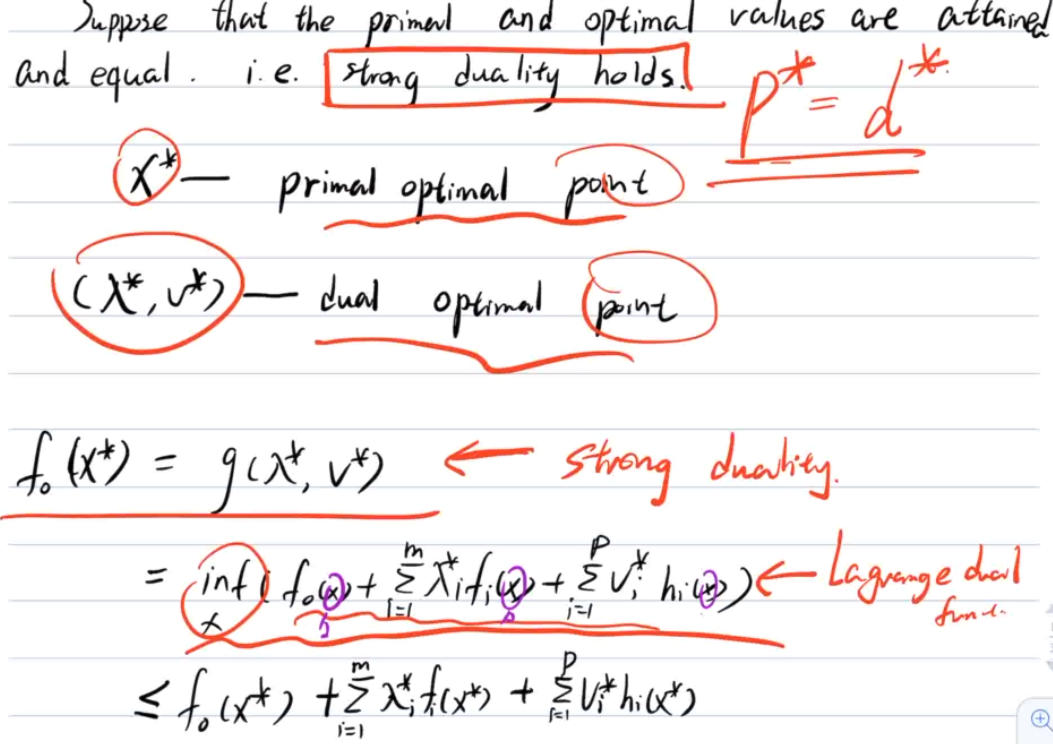 Suppose that the primal and optimal values are attained
and equal. i.e. strong duality holds. p* = d*
x* — primal optimal point
(λ*, v*) — dual optimal point
f₀(x*) = g(λ*, v*) ← strong duality.
= inf_x (f₀(x) + Σ_{i=1}^{m} λ*ᵢfᵢ(x) + Σ_{i=1}^{p} vᵢ* hᵢ(x)) ← Lagrange dual
func.
≤ f₀(x*) + Σ_{i=1}^{m} λ*ᵢ fᵢ(x*) + Σ_{i=1}^{p} vᵢ* hᵢ(x*)